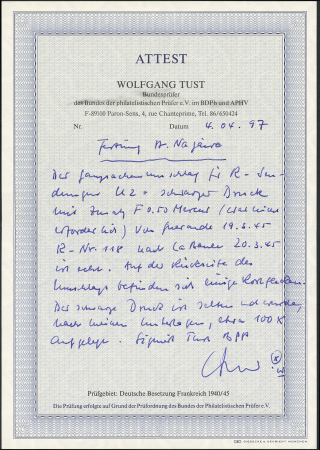 ATTEST
WOLFGANG TUST
Bundesprüfer
des Bundes der philatelistischen Prüfer e.V. im BDPh und APHV
F-89100 Paron-Sens, 4, rue Chanteprime, Tel. 86/650424
Nr. Datum 4.04.97
Festung St. Nazaire
Der Ganzsachenumschlag für R-Sen-
dungen U2 schwarzer Druck
mit Zusatz F 0.50 Mercur
von Guerande 19.3.45
R-Nr. 118 nach La Baule 20.3.45
ist echt. Auf der Rückseite des
Umschlags befinden sich einige
Der schwarze Druck ist selten und wurde,
nach meinen Unterlagen, etwa 100 x
aufgelegt. Signiert Tust BPP
Prüfgebiet: Deutsche Besetzung Frankreich 1940/45
Die Prüfung erfolgte auf Grund der Prüfordnung des Bundes der Philatelistischen Prüfer e.V.
GIESECKE & DEVRIENT MÜNCHEN